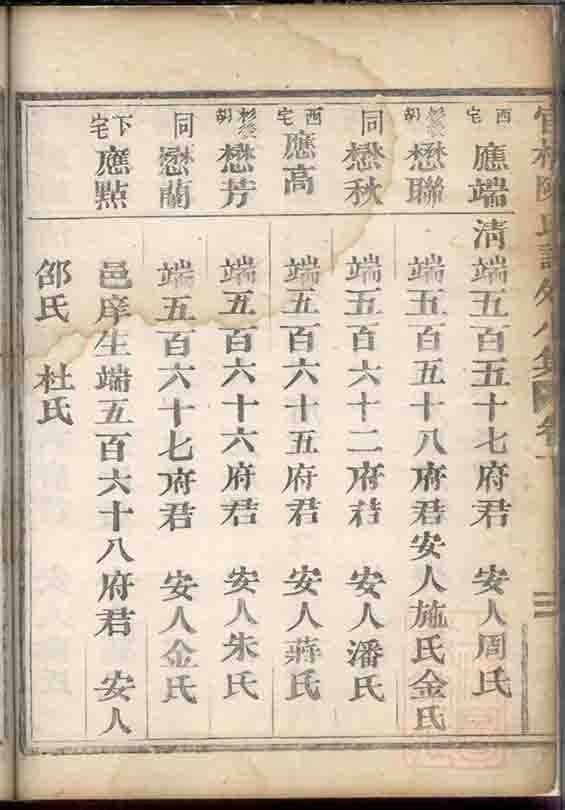 西宅 應端 清端五百五十七府君 安人周氏
懋聯 端五百五十八府君安人施氏金氏
同 懋秋 端五百六十二府君 安人潘氏
西宅 應高 端五百六十五府君 安人蔣氏
懋芳 端五百六十六府君 安人朱氏
同 懋蘭 端五百六十七府君 安人金氏
下宅 應點 邑庠生端五百六十八府君 安人
邵氏 杜氏